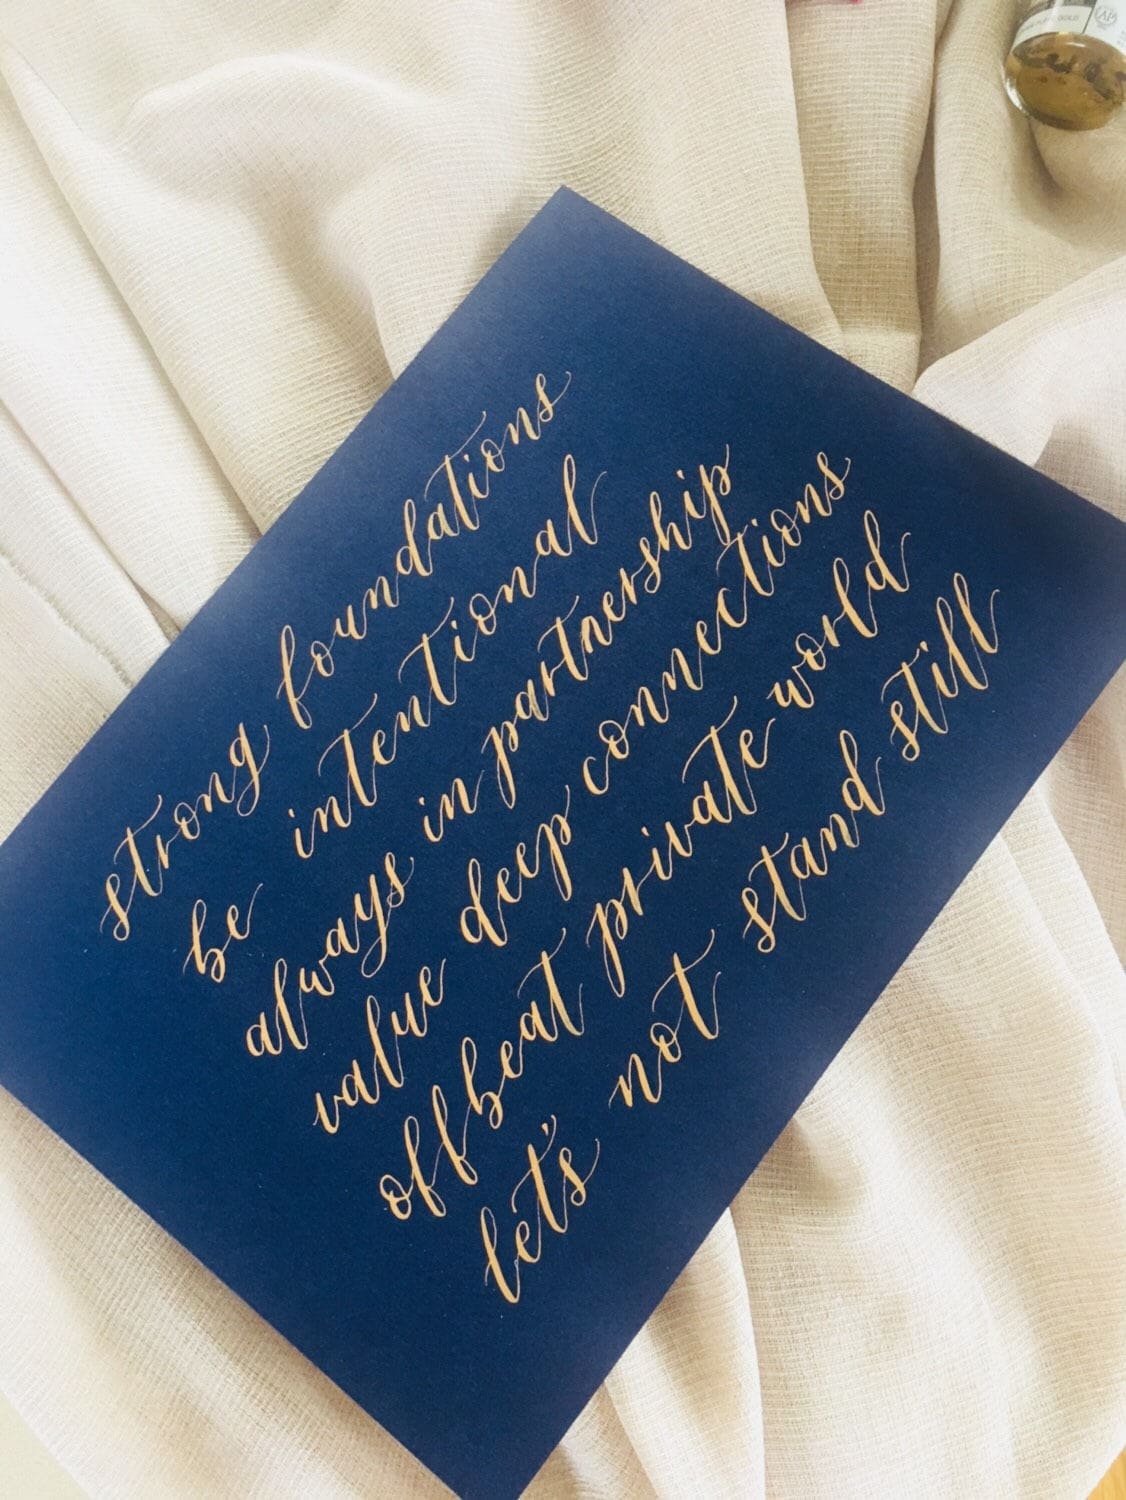 strong foundations
be intentional
always in partnership
value deep connections
offbeat private world
let's not stand still